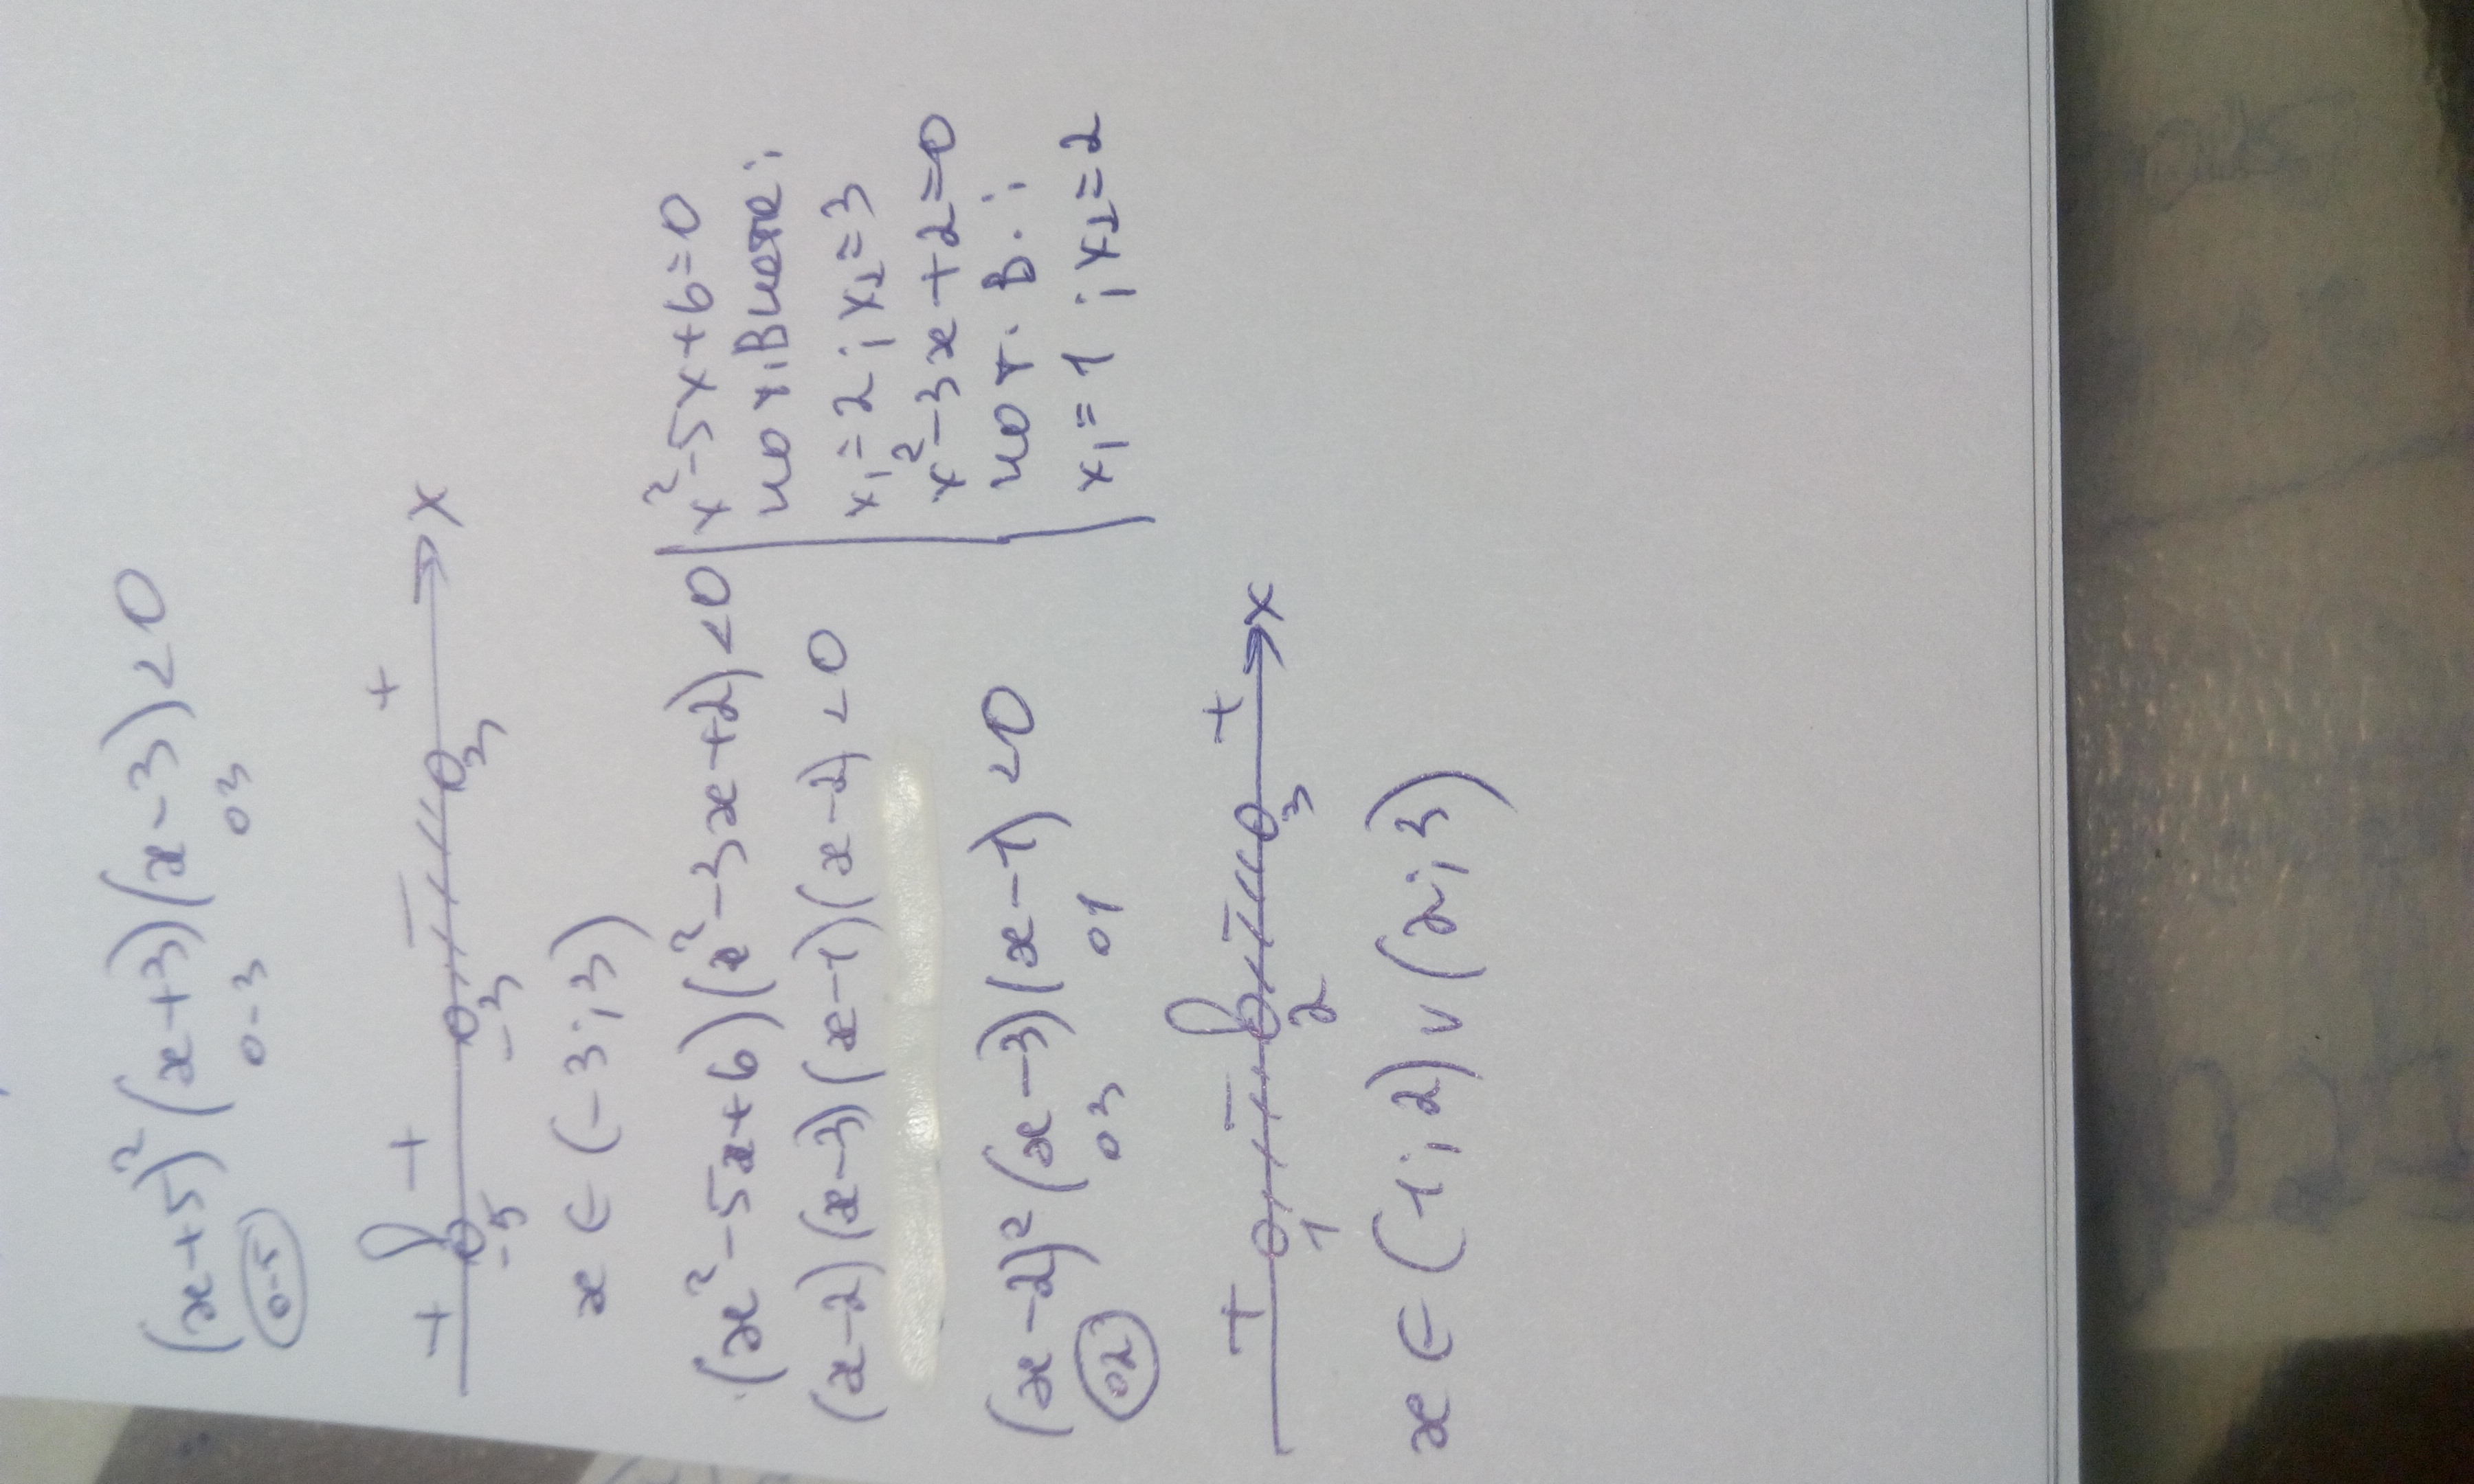 (x+5)²(x+3)(x-3)<0
0-5 0-3 03
+ + - + x
-5 -3 3
x∈(-3;3)
(x²-5x+6)(x²-3x+2)<0
(x-2)(x-3)(x-1)(x-2)<0
(x-2)²(x-3)(x-1)<0
02 03 01
+ - - + x
1 2 3
x∈(1;2)∨(2;3)
x²-5x+6=0
по т. Виета:
x₁=2; x₂=3
x²-3x+2=0
по т. В.:
x₁=1; x₂=2